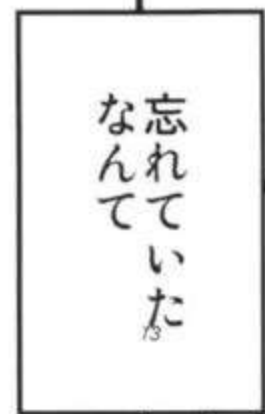 忘れていた
なんて
13